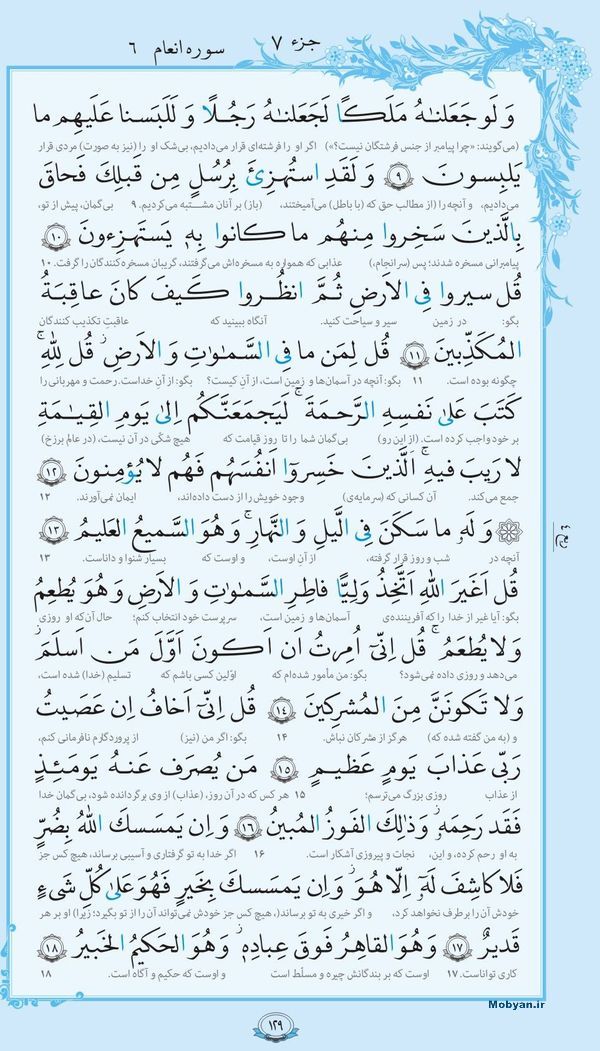 جزء ٧
سوره انعام ٦
وَ لَو جَعَلناهُ مَلَكًا لَجَعَلناهُ رَجُلًا وَ لَلَبَسنا عَلَيهِم ما
(می‌گویند: «چرا پیامبر از جنس فرشتگان نیست؟») اگر او را فرشته‌ای قرار می‌دادیم، بی‌شک او را (نیز به صورت) مردی قرار
يَلبِسونَ ٩ وَ لَقَدِ استُهزِئَ بِرُسُلٍ مِن قَبلِكَ فَحاقَ
می‌دادیم، و آنچه را (از مطالب حق که (با باطل) می‌آمیختند، (باز) بر آنان مشتبه می‌کردیم. ۹ بی‌گمان، پیش از تو،
بِالَّذينَ سَخِروا مِنهُم ما كانوا بِهِ يَستَهزِءونَ ١٠
پیامبرانی مسخره شدند؛ پس (سرانجام،) عذابی که همواره به مسخره‌اش می‌گرفتند، گریبان مسخره‌کنندگان را گرفت. ۱۰
قُل سيروا فِى الاَرضِ ثُمَّ انظُروا كَيفَ كانَ عاقِبَةُ
بگو: در زمین سیر و سیاحت کنید. آنگاه ببینید که عاقبتِ تکذیب کنندگان
المُكَذِّبينَ ١١ قُل لِمَن ما فِى السَّماواتِ وَ الاَرضِ قُل لِلّٰهِ
چگونه بوده است. ۱۱ بگو: آنچه در آسمان‌ها و زمین است، از آنِ کیست؟ بگو: از آن خداست. رحمت و مهربانی را
كَتَبَ عَلىٰ نَفسِهِ الرَّحمَةَ لَيَجمَعَنَّكُم اِلىٰ يَومِ القِيامَةِ
بر خود واجب کرده است. (از این رو) بی‌گمان شما را تا روز قیامت که هیچ شکّی در آن نیست، (در عالم برزخ)
لا رَيبَ فيهِ اَلَّذينَ خَسِروا اَنفُسَهُم فَهُم لا يُؤمِنونَ ١٢
جمع می‌کند. آن کسانی که (سرمایه‌ی) وجود خویش را از دست داده‌اند، ایمان نمی‌آورند. ۱۲
وَ لَهُ ما سَكَنَ فِى الَّيلِ وَ النَّهارِ وَ هُوَ السَّميعُ العَليمُ ١٣
آنچه در شب و روز قرار گرفته، از آن اوست، و اوست که بسیار شنوا و داناست. ۱۳
قُل اَغَيرَ اللهِ اَتَّخِذُ وَلِيًّا فاطِرِ السَّماواتِ وَ الاَرضِ وَ هُوَ يُطعِمُ
بگو: آیا غیر از خدا را که آفریننده‌ی آسمان‌ها و زمین است، سرپرست خود انتخاب کنم؛ حال آن‌که او روزی
وَ لا يُطعَمُ قُل اِنّى اُمِرتُ اَن اَكونَ اَوَّلَ مَن اَسلَمَ
می‌دهد و روزی داده نمی‌شود؟ بگو: من مأمور شده‌ام که اوّلین کسی باشم که تسلیم (خدا) شده است،
وَ لا تَكونَنَّ مِنَ المُشرِكينَ ١٤ قُل اِنّى اَخافُ اِن عَصَيتُ
و (به من گفته شده که) هرگز از مشرکان نباش. ۱۴ بگو: اگر من (نیز) از پروردگارم نافرمانی کنم،
رَبّى عَذابَ يَومٍ عَظيمٍ ١٥ مَن يُصرَف عَنهُ يَومَئِذٍ
از عذاب روزی بزرگ می‌ترسم؛ ۱۵ هر کس که در آن روز، (عذاب) از وی برگردانده شود، بی‌گمان خدا
فَقَد رَحِمَهُ وَ ذٰلِكَ الفَوزُ المُبينُ ١٦ وَ اِن يَمسَسكَ اللهُ بِضُرٍّ
به او رحم کرده، و این، نجات و پیروزی آشکار است. ۱۶ اگر خدا به تو گرفتاری و آسیبی برساند، هیچ کس جز
فَلا كاشِفَ لَهُ اِلّا هُوَ وَ اِن يَمسَسكَ بِخَيرٍ فَهُوَ عَلىٰ كُلِّ شَىءٍ
خودش آن را برطرف نخواهد کرد، و اگر خیری به تو برساند، (هیچ کس جز خودش نمی‌تواند آن را از تو بگیرد؛ زیرا) او بر هر
قَديرٌ ١٧ وَ هُوَ القاهِرُ فَوقَ عِبادِهِ وَ هُوَ الحَكيمُ الخَبيرُ ١٨
کاری تواناست. ۱۷ اوست که بر بندگانش چیره و مسلّط است و اوست که حکیم و آگاه است. ۱۸
١٢٩
Mobyan.ir